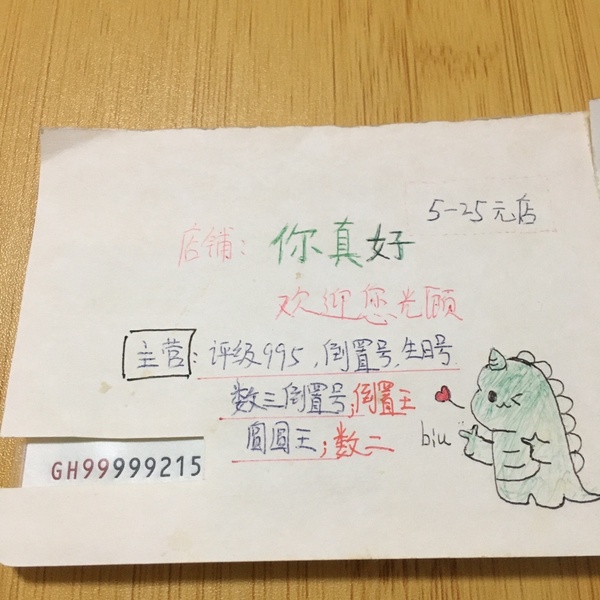 5-25元店
店铺：你真好
欢迎您光顾
主营：评级995，倒置号，生日号
数三倒置号；倒置王
圆圆王；数二
biu
GH99999215